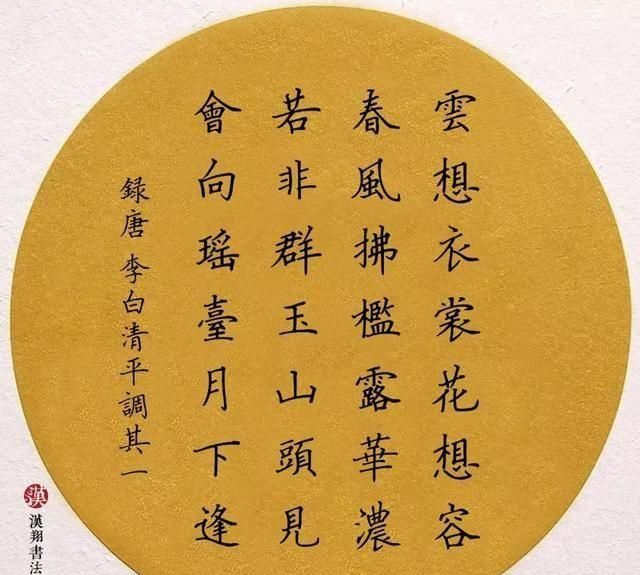 雲想衣裳花想容
春風拂檻露華濃
若非群玉山頭見
會向瑶臺月下逢
録唐李白清平調其一
漢
漢翔書法